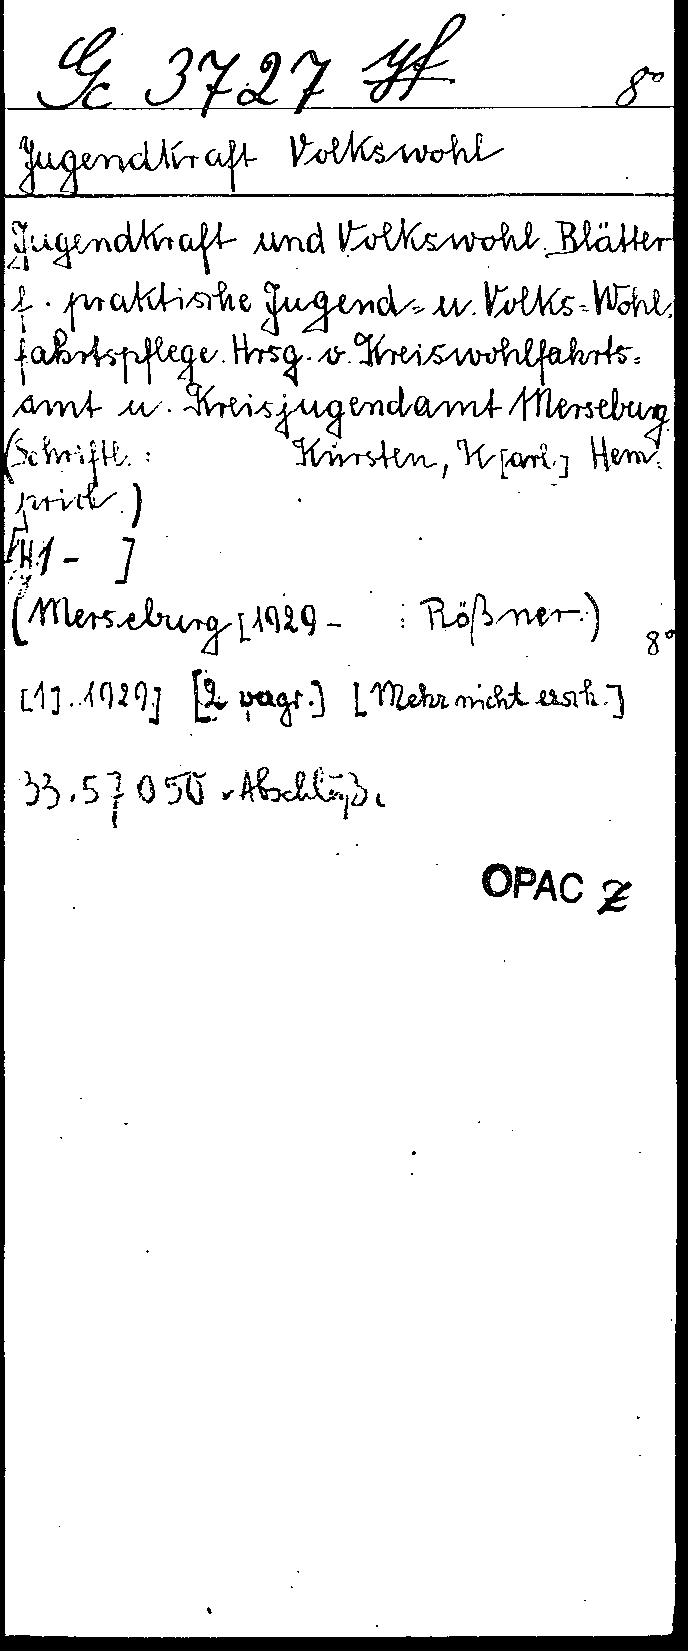 Gc 3727 yf 8°
Jugendkraft Volkswohl
Jugendkraft und Volkswohl. Blätter
f. praktische Jugend- u. Volks-Wohl-
fahrtspflege. Hrsg. v. Kreiswohlfahrts-
amt u. Kreisjugendamt Merseburg
(Schriftl.: Kürsten, K[arl] Hem-
prich.)
[H1- ]
(Merseburg [1929- : Rößner.) 8°
[1]. 1929.] [2 vagr.] [Mehr nicht ersch.]
33.57050. Abschluß.
OPAC Z